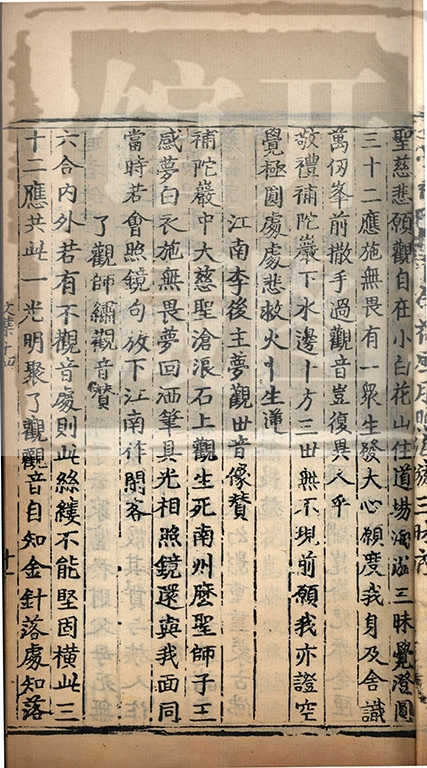 聖慈悲願觀自在小白花山住道場海游三昧覺澄圓
三十二應施無畏有一衆生發大心願度我身及含識
萬仭峯前撒手過觀音豈復異人乎
敬禮補陀巖下水邊十方三世無不現前願我亦證空
覺極圓處處悲救火中生蓮
江南李後主夢觀世音像賛
補陀巖中大慈聖滄浪石上觀生死南州麽聖師子王
感夢白衣施無畏夢回洒筆具光相照鏡還眞我面同
當時若會照鏡句放下江南作閑客
了觀師繡觀音賛
六合内外若有不觀音處則此絲縷不能堅固橫此三
十二應共此一光明聚了觀觀音自知金針落處知落
文集十四
十一